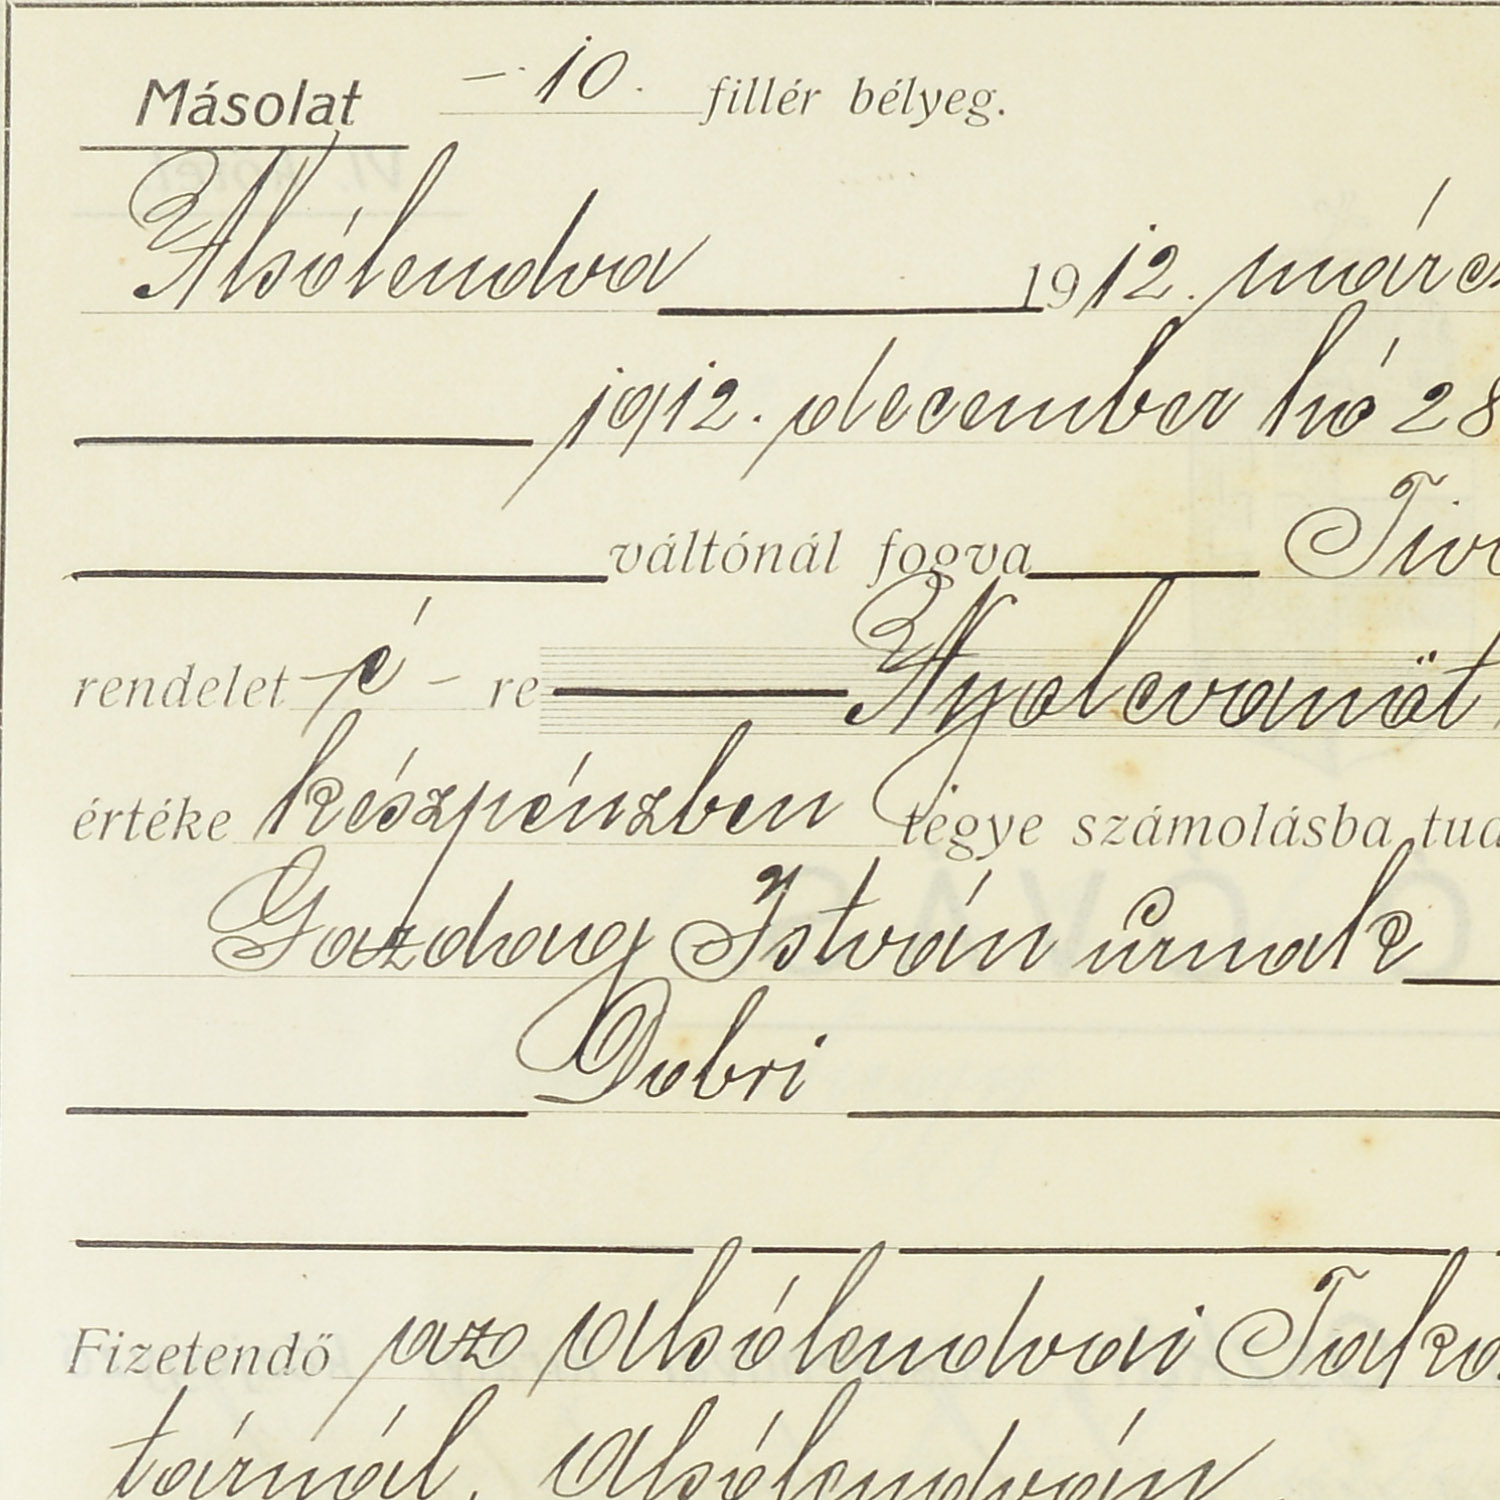 Másolat – 10. fillér bélyeg.
Alsólendva 1912. márc
1912. december hó 28
váltónál fogva
rendelet – é – re
értéke készpénzben tégye számolásba
Gazdag István úrnak
Dobri
Fizetendő az Alsólendvai Taka
tárnál, Alsólendván.